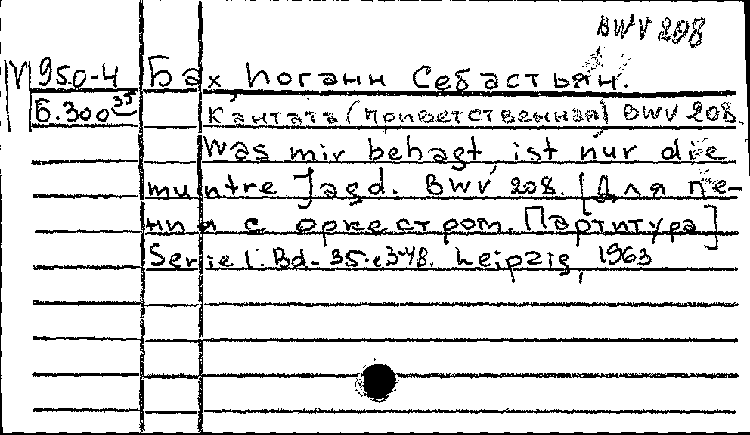 BWV 208
М 950-4 Бах, Иоганн Себастьян.
Б.300 35 Кантата (приветственная) BWV 208.
Was mir behagt, ist nur die
muntre Jagd. BWV 208. [Для пе-
ния с оркестром. Партитура]
Serie 1. Bd. 35. c 3-48. Leipzig, 1963